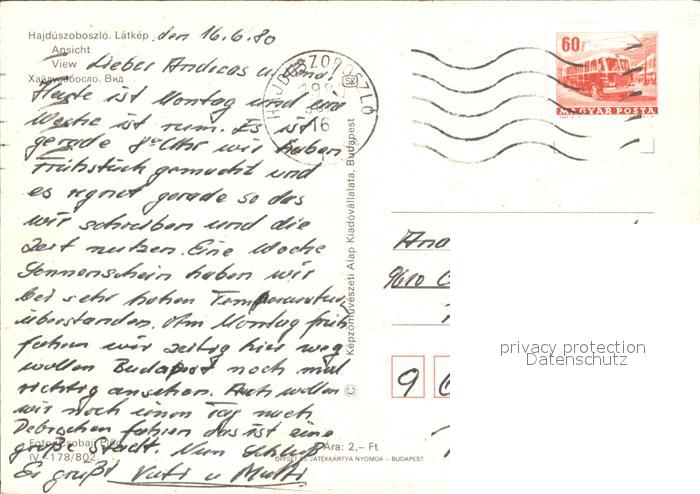 Hajdúszoboszló. Látkép
Ansicht
View
Хайдусобосло. Вид
den 16.6.80
Lieber Andreas u.
Heute ist Montag und eine
Woche ist rum. Es ist
gerade 8⁰⁰ Uhr wir haben
Frühstück gemacht und
es regnet gerade so das
wir schreiben und die
Zeit nutzen. Eine Woche
Sonnenschein haben wir
bei sehr hohen Temperaturen
überstanden. Am Montag früh
fahren wir zeitig hier weg
wollen Budapest noch mal
richtig ansehen. Auch wollen
wir noch einen Tag nach
Debrechen fahren das ist eine
große Stadt. Nun Schluß
Es grüßt Vati u Mutti
Foto: Csobaji Előd
IV.-178/802
Ára: 2,– Ft
OFFSET ÉS JÁTÉKKÁRTYA NYOMDA – BUDAPEST
© Képzőművészeti Alap Kiadóvállalata, Budapest
HAJDÚSZOBOSZLÓ
1980
16
60f
MAGYAR POSTA
And
9610
9
privacy protection
Datenschutz